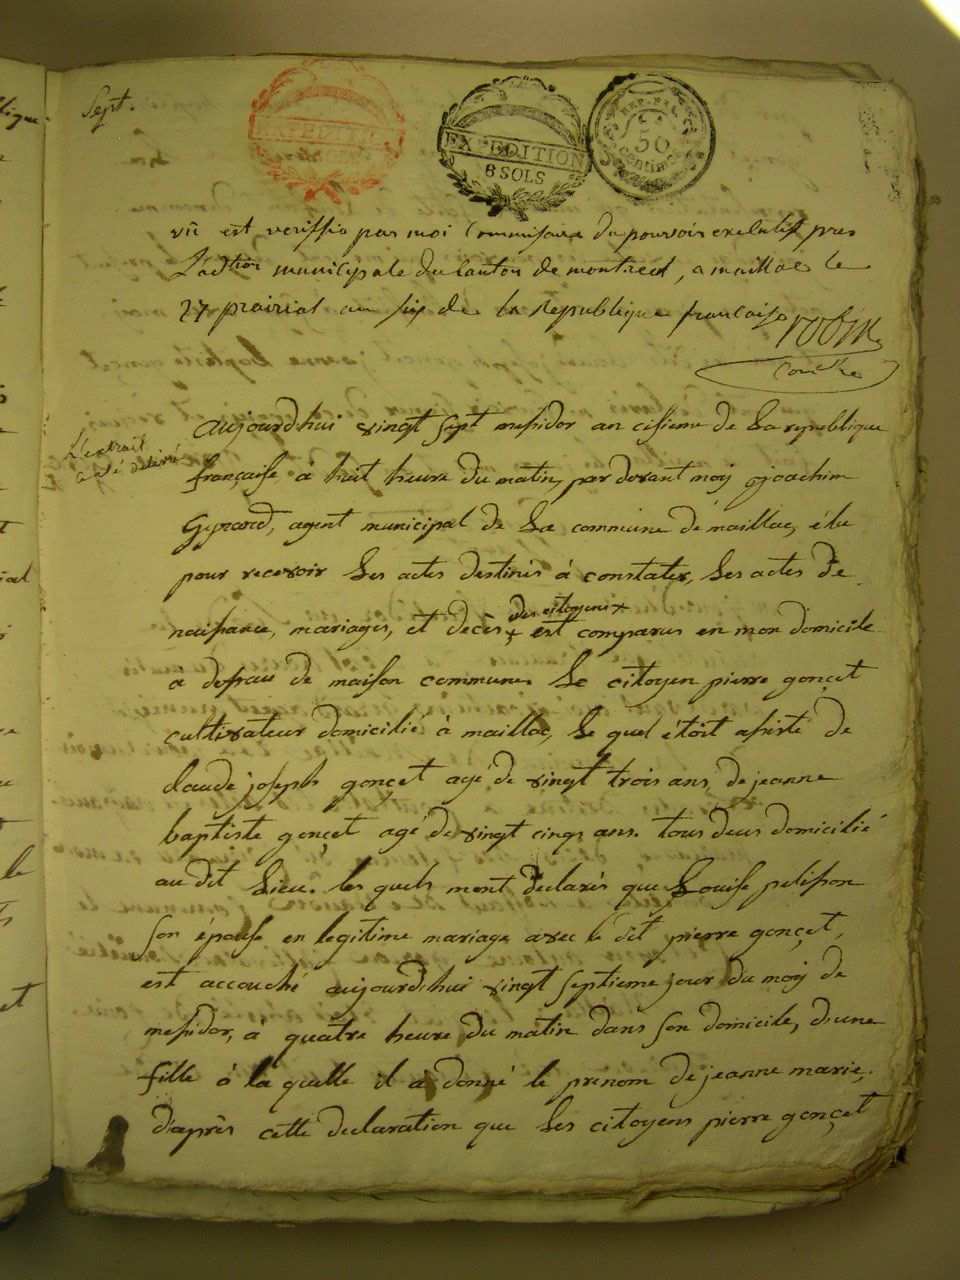 Sept.
EXPEDITION
EXPEDITION
6 SOLS
REP. FRA.
50
centimes
vü est veriffié par moi Commissaire du pouvoir exekutif pres
L'adtion municipale du Canton de montreal, a maillac le
27 prairial an six de la Republique francaise robin
Comre
L'extrait
a été délivré
aujourd'hui vingt sept messidor an cisieme de La republique
française à huit heure du matin, par devant moy joachim
Gyrard, agent municipal de La commune de maillac, élu
pour recevoir Les actes destinés à constater, Les actes de
naissance, mariages, et decès des citoyens est comparus en mon domicile
a defraut de maison commune. Le citoyen pierre gonçet
cultivateur domicilié à maillac, Le quel étoit assisté de
claude joseph gonçet agé de vingt trois ans, de jeanne
baptiste gonçet agé de vingt cinqs ans. tous deus domicilié
au dit Lieu. les quels mont declarés que Louise pelisson
son épouse en legitime mariage avec le dit pierre gonçet,
est accouché aujourd'hui vingt septieme jour du moy de
messidor, à quatre heure du matin dans son domicile, d'une
fille à la quelle il a donné le prénom de jeanne marie,
d'après cette declaration que Les citoyens pierre gonçet